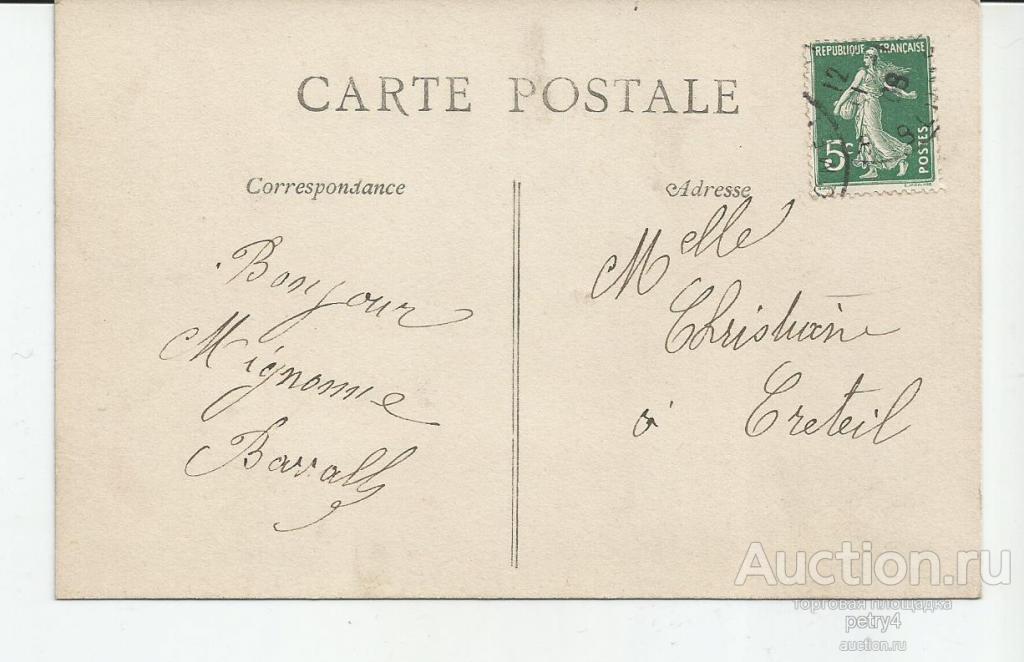 CARTE POSTALE
REPUBLIQUE FRANÇAISE
5c
POSTES
12
Correspondance
Adresse
Bonjour
Mignonne
Melle
Christiane
à Creteil
Auction.ru
торговая площадка
petry4
auction.ru